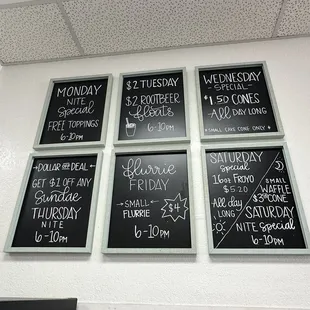 MONDAY
NITE
Special
FREE TOPPINGS
6-10pm
$2 TUESDAY
$2 ROOTBEER
floats
6-10pm
WEDNESDAY
SPECIAL
$1.50 CONES
All DAY LONG
SMALL CAKE CONE ONLY
DOLLAR OFF DEAL
GET $1 OFF ANY
Sundae
THURSDAY
NITE
6-10pm
flurrie
FRIDAY
SMALL
FLURRIE
$4
6-10pm
SATURDAY
Special
16oz FROYO
$5.20
All day
LONG
SMALL
WAFFLE
CONE
SATURDAY
NITE Special
6-10pm